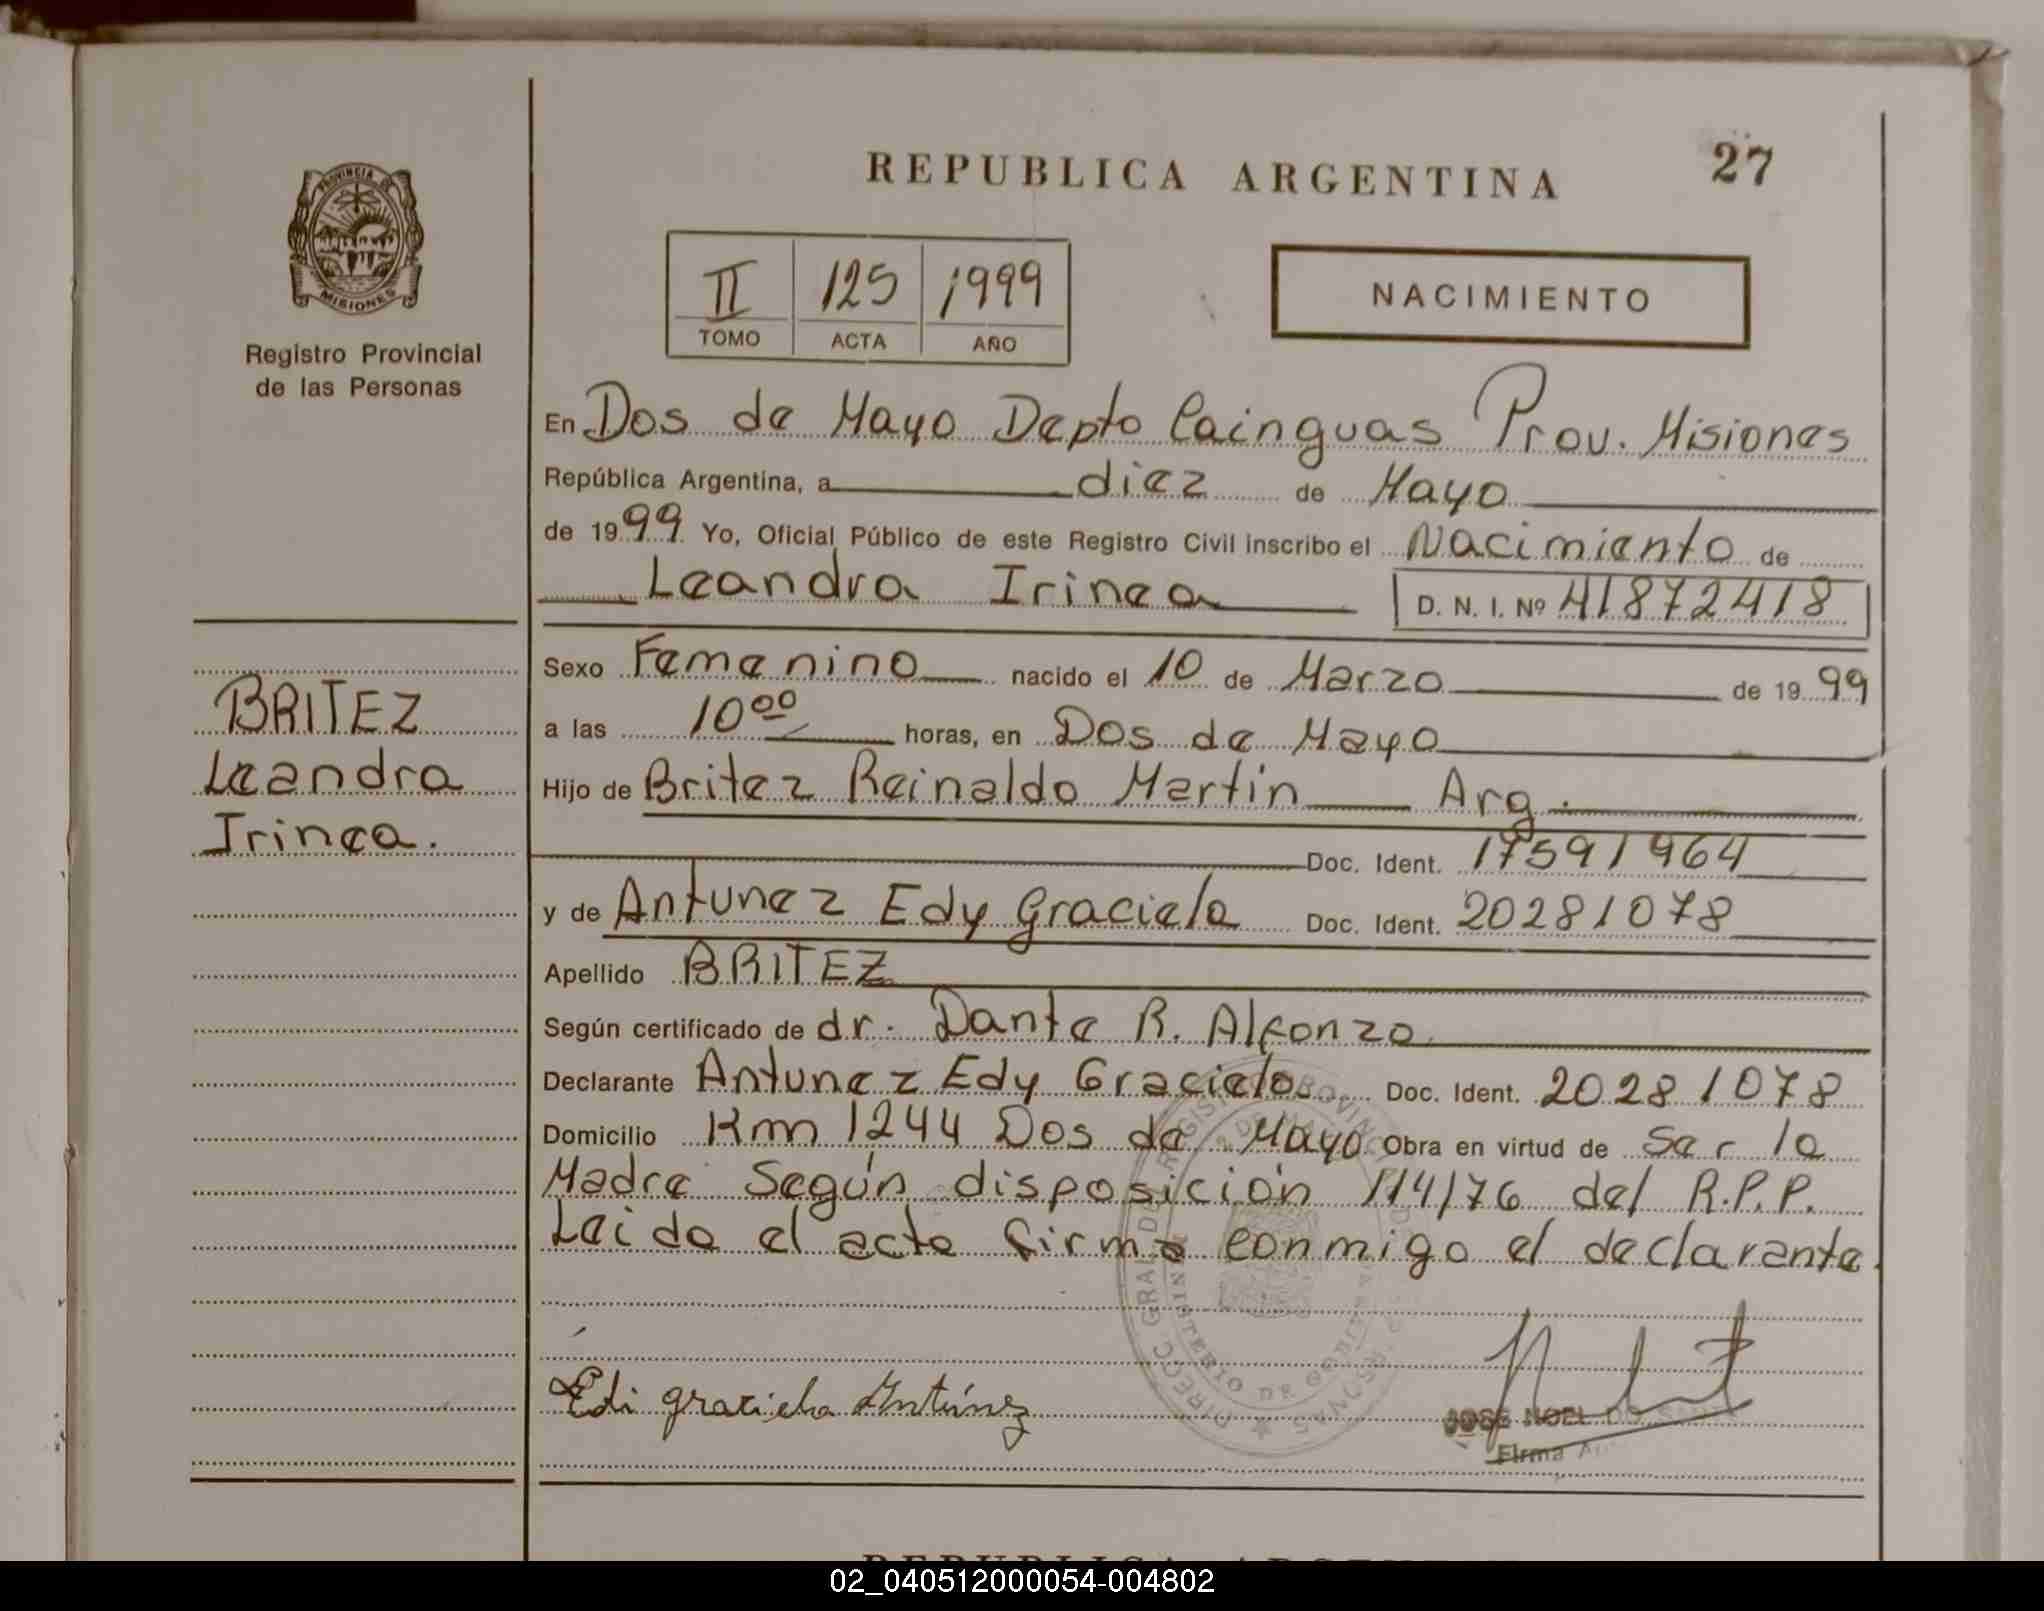 REPUBLICA ARGENTINA
27
PROVINCIA DE
MISIONES
Registro Provincial
de las Personas
II 125 1999
TOMO ACTA AÑO
NACIMIENTO
En Dos de Mayo Depto Cainguas Prov. Misiones
República Argentina, a diez de Mayo
de 1999 Yo, Oficial Público de este Registro Civil inscribo el Nacimiento de
Leandra Irinea D. N. I. Nº 41872418
Sexo Femenino nacido el 10 de Marzo de 1999
a las 10 00 horas, en Dos de Mayo
Hijo de Britez Reinaldo Martin Arg.
Doc. Ident. 17591964
y de Antunez Edy Graciela Doc. Ident. 20281078
Apellido BRITEZ
Según certificado de dr. Dante R. Alfonzo
Declarante Antunez Edy Graciela Doc. Ident. 20281078
Domicilio Km 1244 Dos de Mayo Obra en virtud de Ser la
Madre Según disposición 114/76 del R.P.P.
Leido el acta firma conmigo el declarante.
BRITEZ
Leandra
Irinea.
Edi graciela Antúnez
JOSE NOEL
Firma
02_040512000054-004802